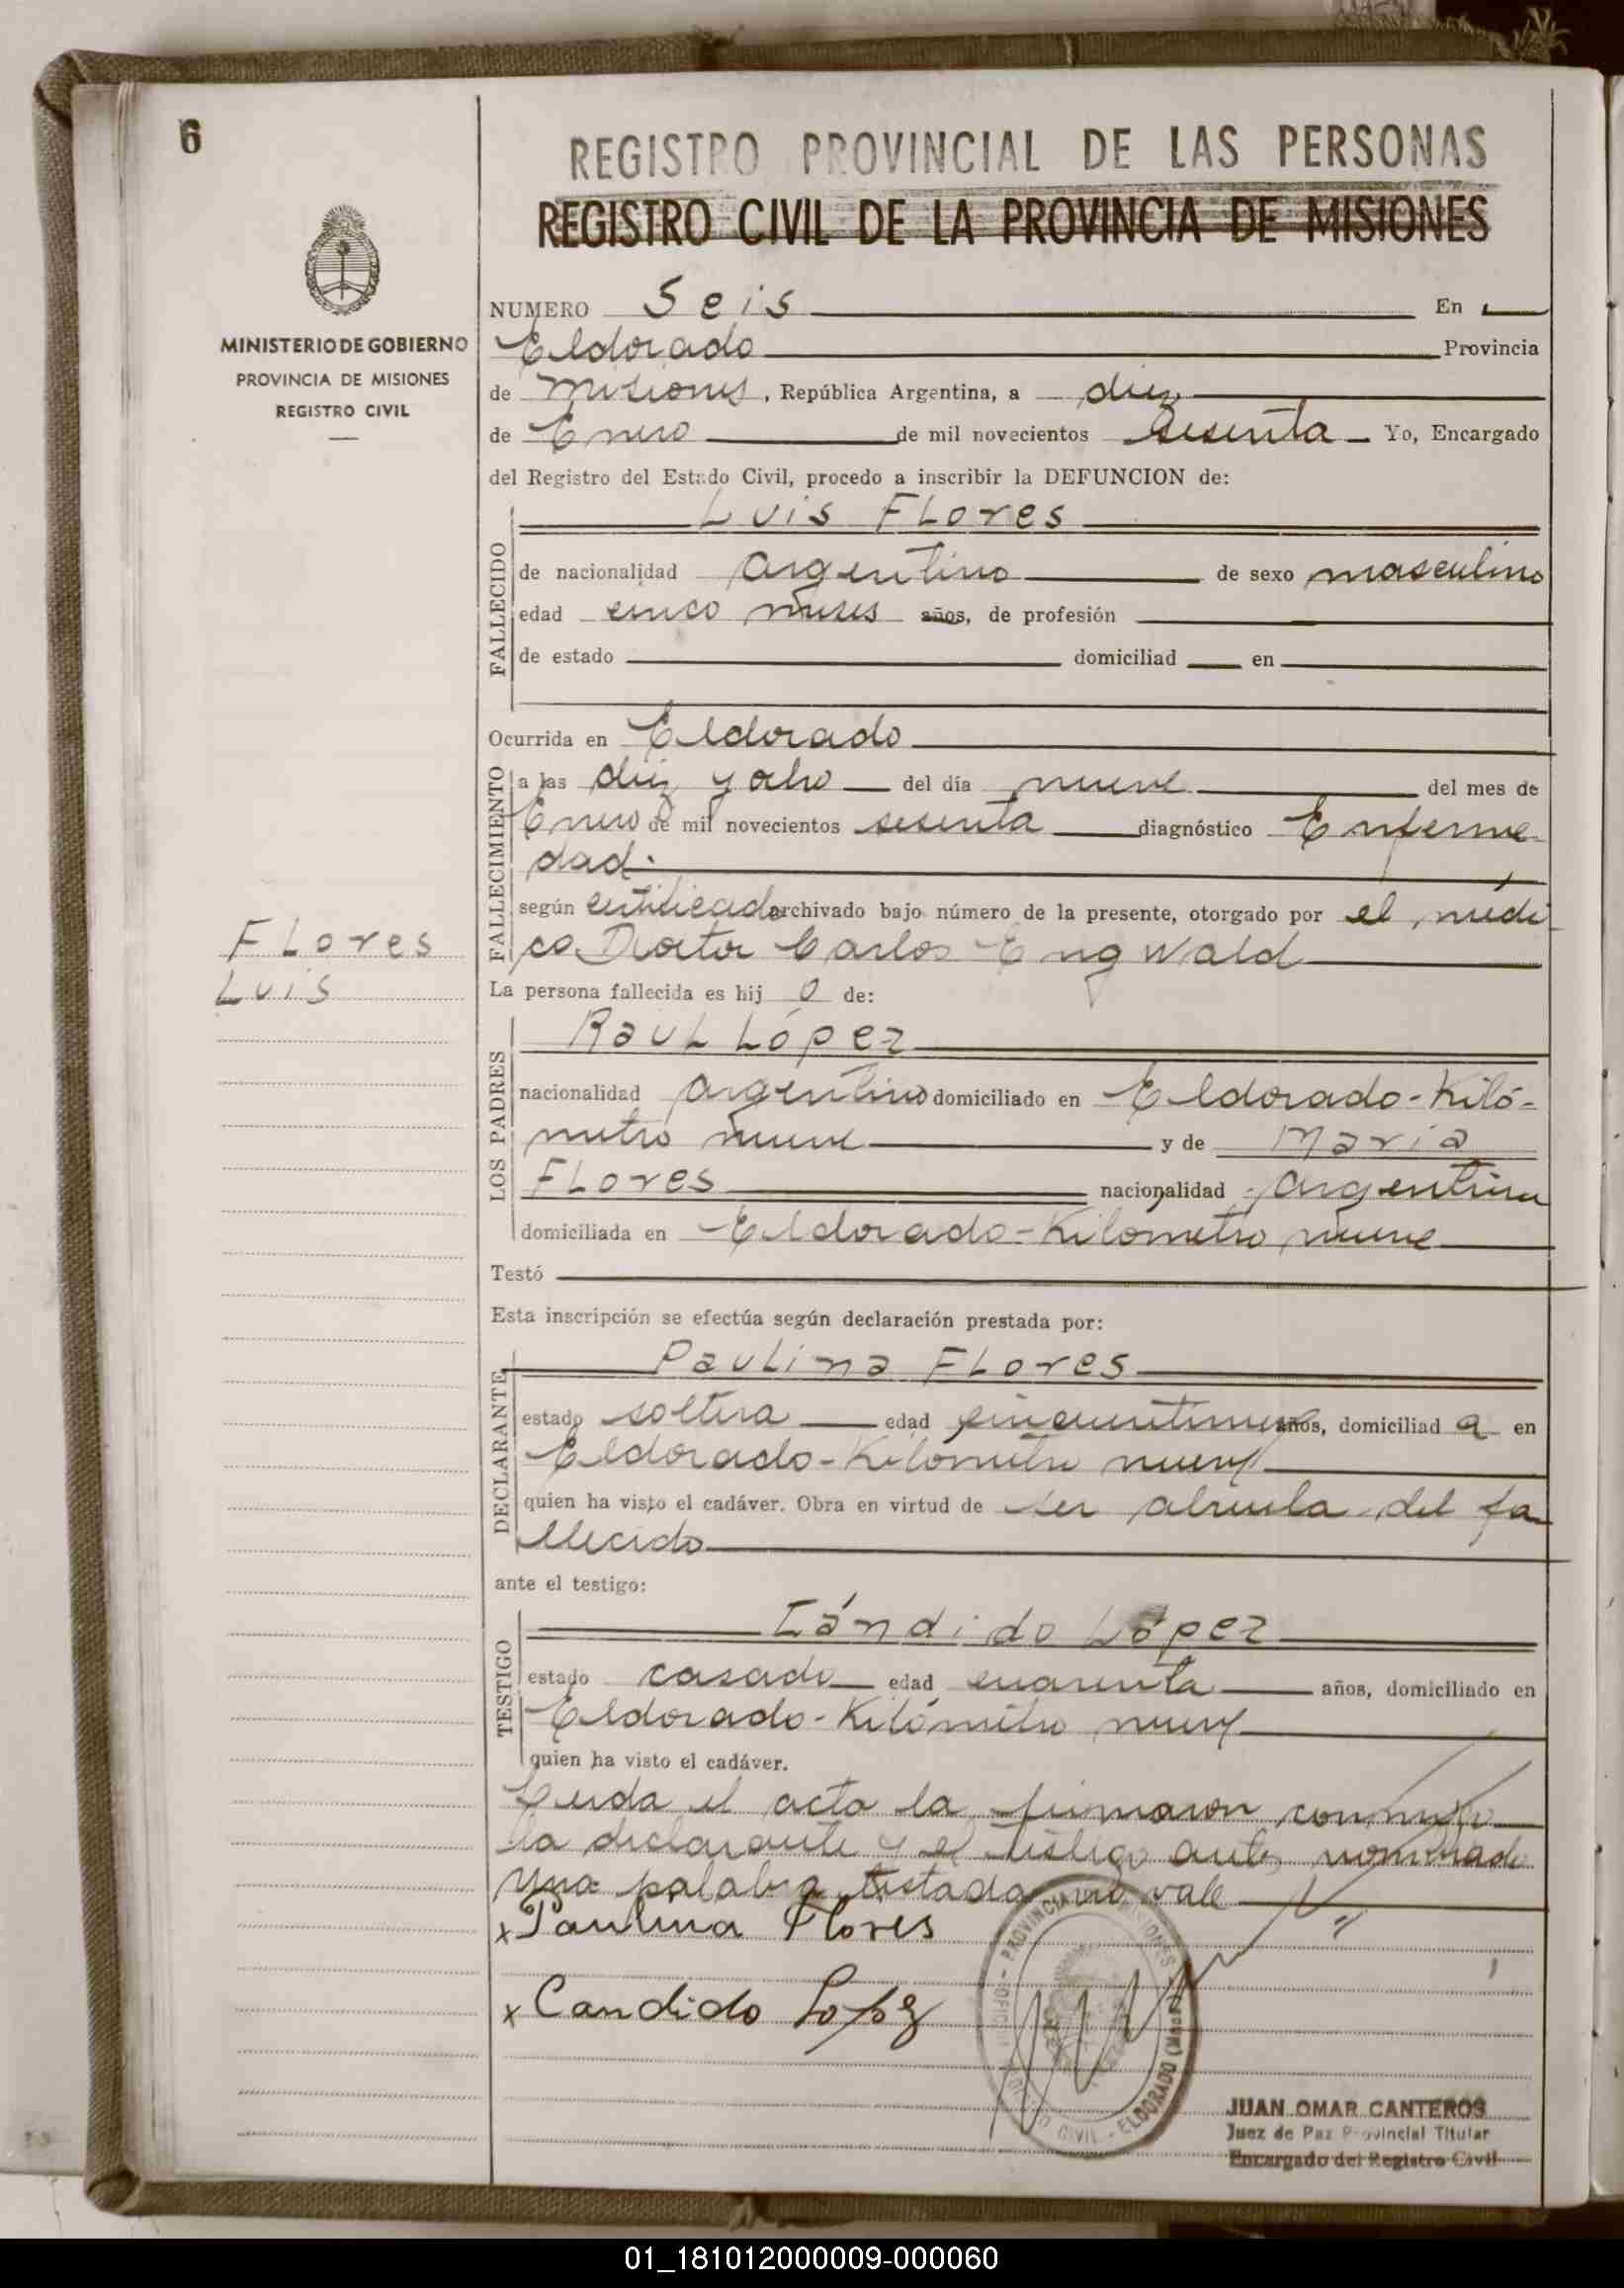 6
REGISTRO PROVINCIAL DE LAS PERSONAS
REGISTRO CIVIL DE LA PROVINCIA DE MISIONES
MINISTERIO DE GOBIERNO
PROVINCIA DE MISIONES
REGISTRO CIVIL
NUMERO Seis En
Eldorado Provincia
de Misiones, República Argentina, a diez
de Enero de mil novecientos sesenta Yo, Encargado
del Registro del Estado Civil, procedo a inscribir la DEFUNCION de:
Luis Flores
FALLECIDO
de nacionalidad argentino de sexo masculino
edad cinco meses años, de profesión
de estado domiciliad en
Ocurrida en Eldorado
FALLECIMIENTO
a las diez y ocho del día nueve del mes de
Enero de mil novecientos sesenta diagnóstico Enferme-
dad.
según certificado archivado bajo número de la presente, otorgado por el médi
co Doctor Carlos Engwald
Flores
Luis
La persona fallecida es hij o de:
LOS PADRES
Raul López
nacionalidad argentino domiciliado en Eldorado-Kiló-
metro nueve y de Maria
Flores nacionalidad argentina
domiciliada en Eldorado-Kilometro nueve
Testó
Esta inscripción se efectúa según declaración prestada por:
DECLARANTE
Paulina Flores
estado soltera edad años, domiciliad a en
Eldorado-Kilometro nueve
quien ha visto el cadáver. Obra en virtud de ser abuela del fa
llecido
ante el testigo:
TESTIGO
Cándido López
estado casado edad cuarenta años, domiciliado en
Eldorado-Kilómetro nueve
quien ha visto el cadáver.
Leida el acta la firmaron conmigo
la declarante y el testigo antes nombrado
Una palabra testada no vale
x Paulina Flores
x Candido Lopez
PROVINCIA DE MISIONES
REGISTRO CIVIL - ELDORADO (Mnes.)
JUAN OMAR CANTEROS
Juez de Paz Provincial Titular
Encargado del Registro Civil
01_181012000009-000060